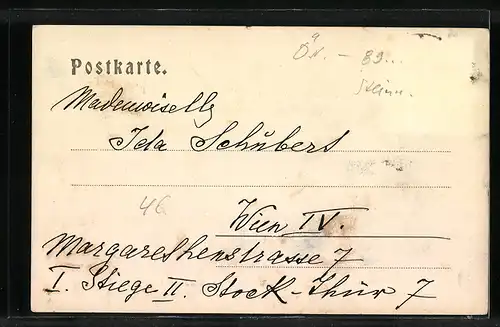 Ör. - 89...
Postkarte.
Mademoiselle
Ida Schubert
Wien IV.
Margarethenstrasse 7
I. Stiege II. Stock-Thür 7